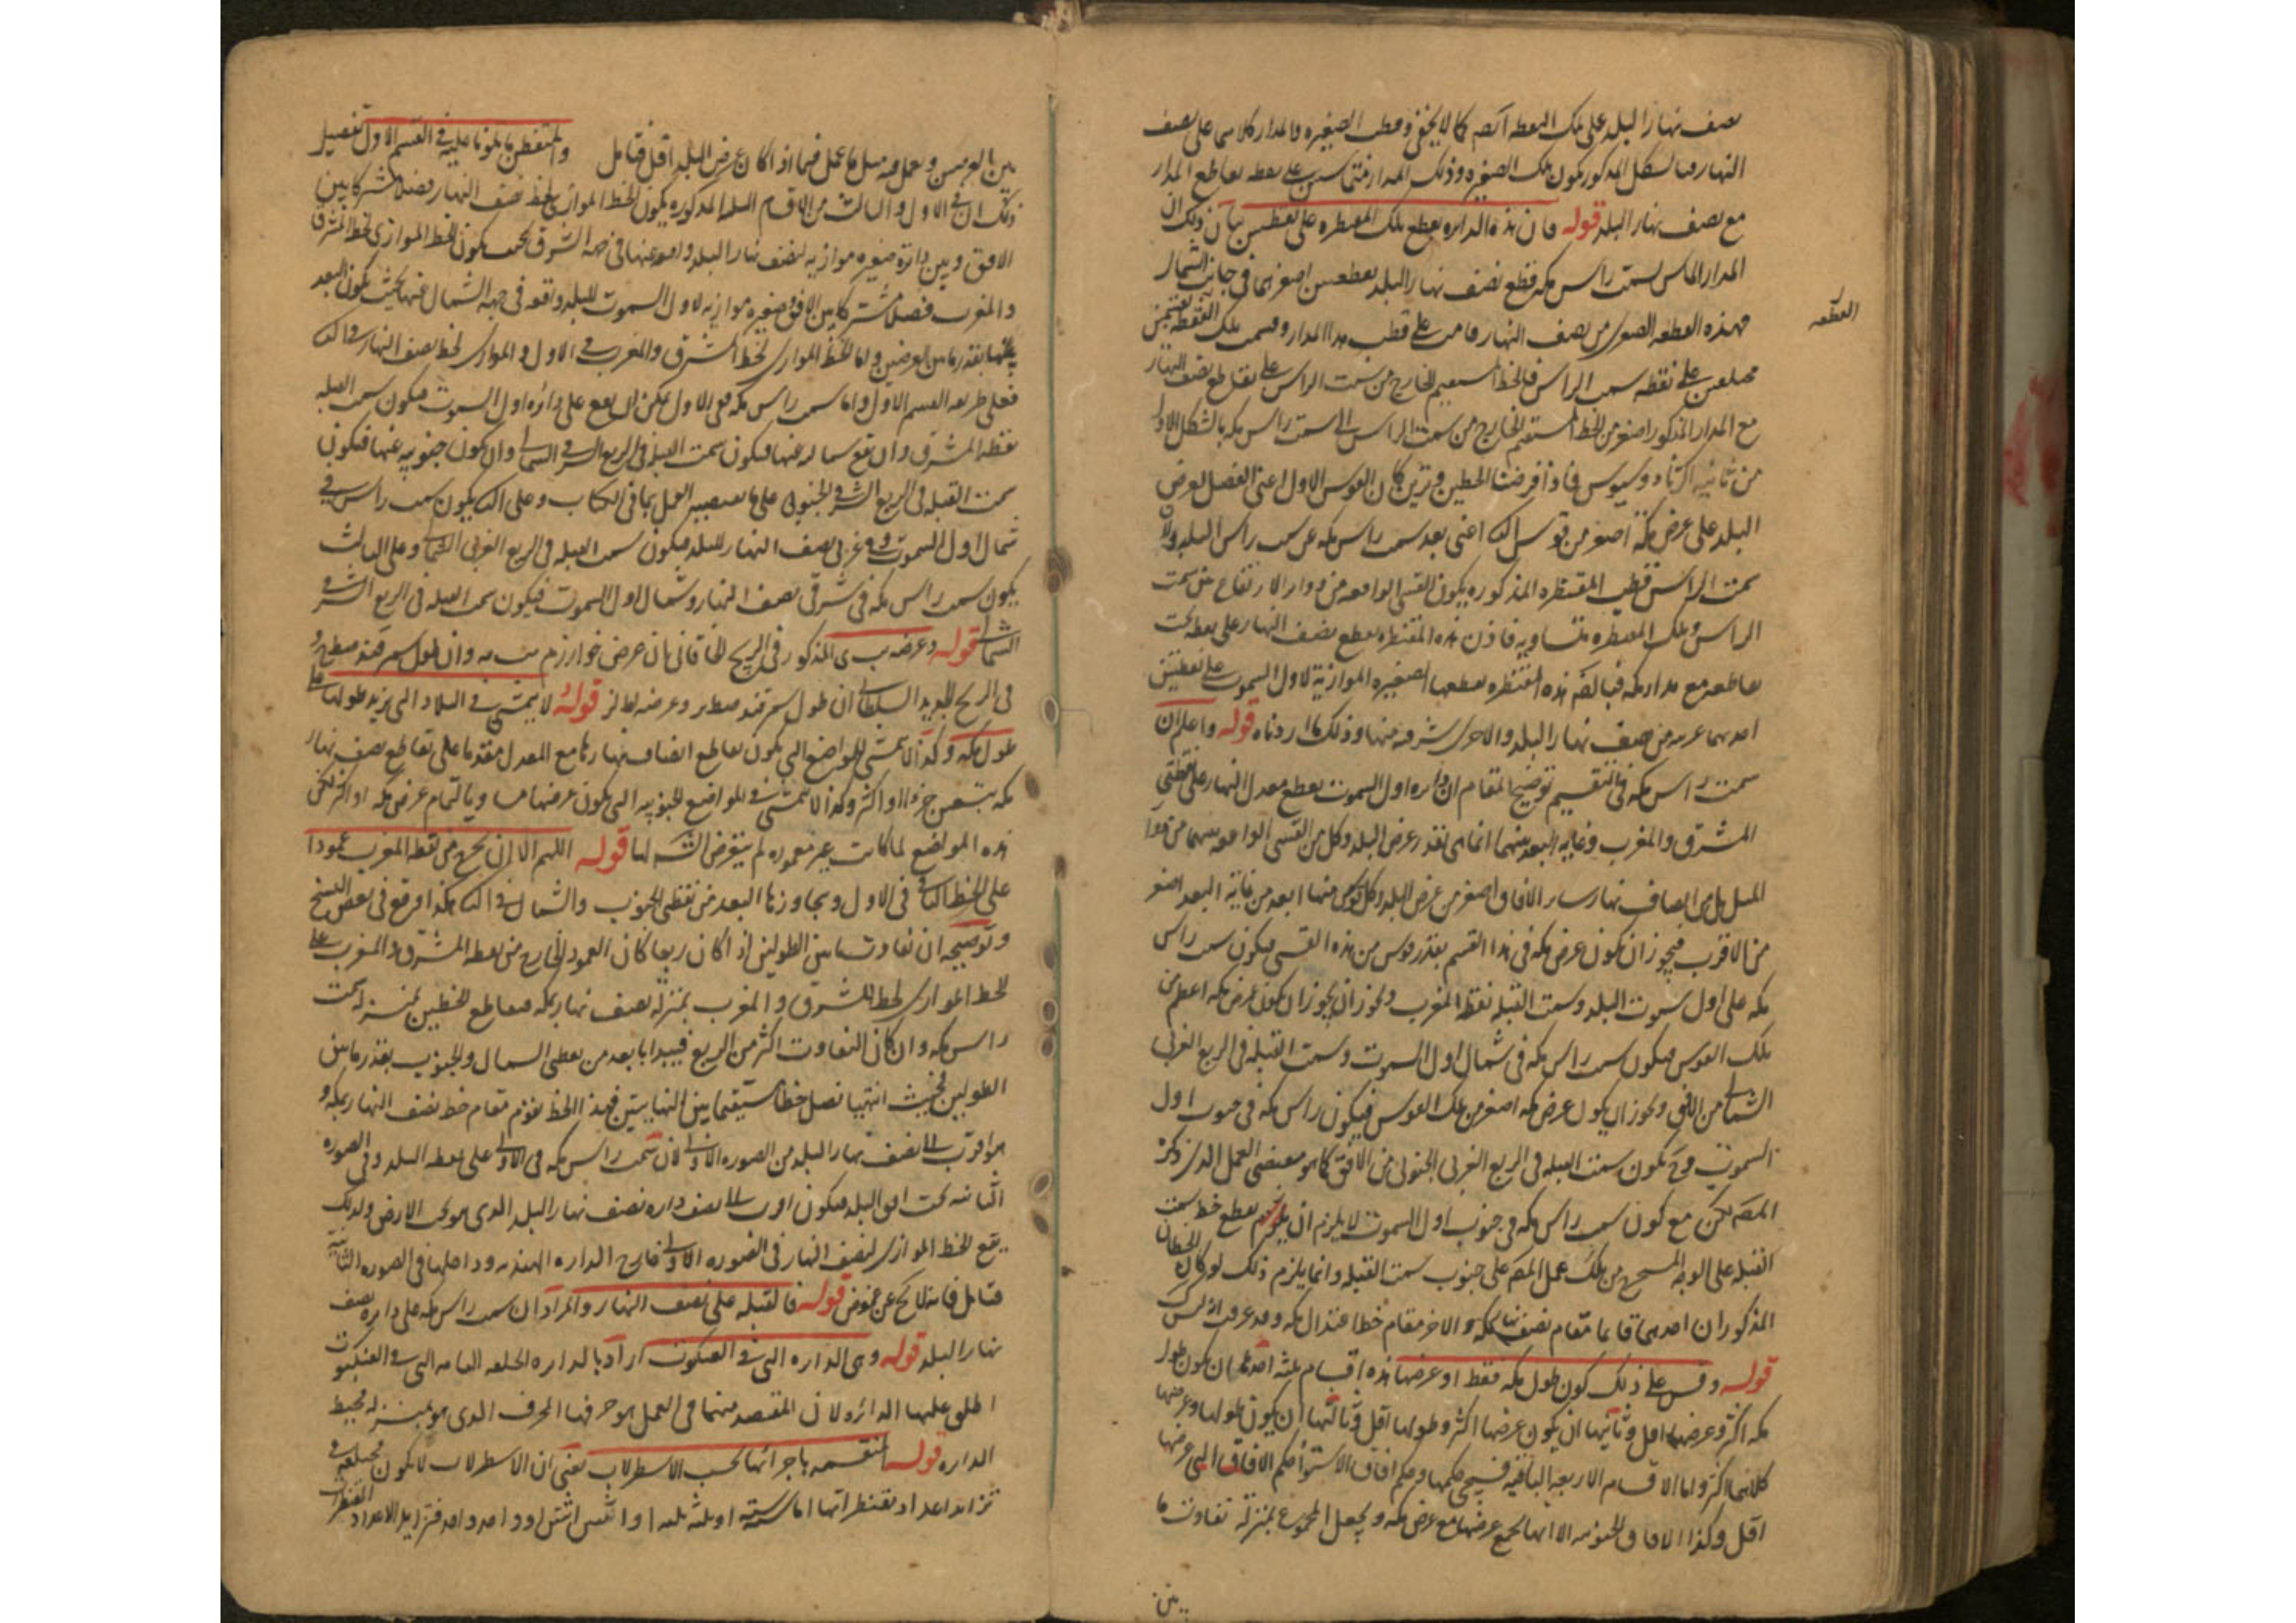 نصف نهار البلد على تلك النقطة ايضا كما لا يخفى وقطب الصغيرة والمدار كلاهما على نصف
النهار فبالشكل المذكور يكون تلك الصغيرة وذلك المدار متماسين على نقطة تقاطع المدار
مع نصف نهار البلد قوله فان هذه الدايره يقطع تلك المقنطره على نقطتين بيان ذلك ان
المدار المماس لسمت راس مكه قطع نصف نهار البلد بقطعتين اصغرهما في جانب الشمال
فهذه القطعه من نصف النهار قامت على قطر هذا المدار وقسمت تلك القطعة بقسمين
القطعه
مختلفين على نقطه سمت الراس فالخط المستقيم الخارج من سمت الراس على تقاطع نصف النهار
مع المدار المذكور اصغر من الخط المستقيم الخارج من سمت الراس الى سمت راس مكه بالشكل الاول
من ثانيه اكر ثاودوسيوس فاذا فرضنا الخطين وترين كان القوس الاول اعنى الفضل لعرض
البلد على عرض مكة اصغر من قوس الثانى اعنى بعد سمت راس مكه عن سمت راس البلد ولان
سمت الراس قطب المقنطره المذكوره يكون القسى الواقعه من دواير الارتفاع بين سمت
الراس وتلك المقنطره متساويه فاذن هذه المقنطره يقطع نصف النهار على نقطه تحت
تقاطعه مع مدار مكه فبالضم هذه المقنطره يقطعها الصغيره الموازية لاول السموت على نقطتين
احدهما غربيه من نصف نهار البلد والاخرى شرقيه منها وذلك ما اردناه قوله واعلم ان
سمت راس مكه في التقسيم توضيح المقام ان دايره اول السموت يقطع معدل النهار على نقطتى
المشرق والمغرب وغايه البعد بينهما انما هى بقدر عرض البلد وكل من القسى الواقعه بينهما من دوائر
الميل بل من انصاف نهار ساير الافاق اصغر من عرض البلد وكل قوس منها ابعد من غاية البعد اصغر
من الاقرب فيجوز ان يكون عرض مكه في هذا القسم بقدر قوس من هذه القسى فيكون سمت راس
مكه على اول سموت البلد وسمت القبله نقطة المغرب ويجوز ان يكون عرض مكه اعظم من
تلك القوس فيكون سمت راس مكه في شمال اول السموت وسمت القبله في الربع الغربى
الشمالى من الافق ويجوز ان يكون عرض مكه اصغر من تلك القوس فيكون راس مكه في جنوب اول
السموت فح يكون سمت القبله في الربع الغربى الجنوبى من الافق كما هو مقتضى العمل الذى ذكره
المص لكن مع كون سمت راس مكه في جنوب اول السموت لا يلزم ان يقع تقطع خط سمت
القبله على الوجه المستخرج من تلك عمل المص على جنوب سمت القبله وانما يلزم ذلك لو كان الخطان
المذكوران احدهما قائما مقام نصف نهار مكه والاخر مقام خط اعتدال مكه وقد عرفت انه ليس كذلك
قوله وقس على ذلك كون طول مكه فقط او عرضها هذه اقسام ثلثه احدها ان يكون طول
مكه اكثر وعرضها اقل وثانيها ان يكون عرضها اكثر وطولها اقل وثالثها ان يكون طولها وعرضها
كلاهما اكثر واما الاقسام الاربعة الباقيه فسيجئ حكمها وحكم افاق الاستوا حكم الافاق التى عرضها
اقل وكذا الافاق الجنوبيه الا انها يجمع عرضها مع عرض مكه ويجعل المجموع بمنزلة تفاوت ما
بين
بين العرضين ويعمل فيه مثل ما عمل فيما اذا كان عرض البلد اقل فتامل والمتفطن بما تلونا عليه في القسم الاول تفصيل
ذلك ان في الاول والثالث من الاقسام الثلثه المذكوره يكون الخط الموازى لخط نصف النهار فصلا مشتركا بين
الافق وبين دائرة صغيره موازيه لنصف نهار البلد واقعه عنها في جهة الشرق بحيث يكون الخط الموازى لخط المشرق
والمغرب فصلا مشتركا بين الافق وصغيره موازيه لاول السموت للبلد واقعه في جهة الشمال عنها بحيث يكون البعد
بينهما بقدر ما بين العرضين واما الخط الموازى لخط المشرق والمغرب في الاول والموازى لخط نصف النهار في الثالث
فعلى طريقه القسم الاول واما سمت راس مكه فعلى الاول يمكن ان يقع على دائره اول السموت فيكون سمت القبله
نقطة المشرق وان يقع شماليه عنها فيكون سمت القبله في الربع الشرقى الشمالى وان يكون جنوبيه عنها فيكون
سمت القبله في الربع الشرقى الجنوبى على ما يقتضيه العمل بما في الكتاب وعلى الثانى يكون سمت راس مكه في
شمال اول السموت وغربى نصف النهار للبلد فيكون سمت القبله في الربع الغربى الشمالى وعلى الثالث
يكون سمت راس مكه في شرقى نصف النهار وشمال اول السموت فيكون سمت القبله في الربع الشرقى
الشمالى قوله وعرضه ب ى المذكور في الزيج الخاقانى ان عرض خوارزم مب يه وان طول سمرقند صط يو
في الزيج الجديد السلطانى ان طول سمرقند صط يو وعرضه لط لز قوله لا يتمشى في البلاد التى يزيد طولها على
طول مكه وكذا لا يتمشى في المواضع التى يكون تقاطع انصاف نهارها مع المعدل مقدما على تقاطع نصف نهار
مكه بتسعين جزءا او اكثر وكذا لا يتمشى في المواضع الجنوبيه التى يكون عرضها مساويا لتمام عرض مكه او اكثر لكن
هذه المواضع لما كانت غير معموره لم يتعرض الش لها قوله اللهم الا ان يخرج من نقطة المغرب عمودا
على الخط الثانى في الاول ويجاوز بها البعد من نقطتى الجنوب والشمال في الثانى هكذا وقع في بعض النسخ
وتوضيحه ان تفاوت ما بين الطولين اذا كان ربعا كان العمود الخارج من نقطة المشرق والمغرب على
الخط الموازى لخط المشرق والمغرب بمنزلة نصف نهار مكه فتقاطع الخطين بمنزلة سمت
راس مكه وان كان التفاوت اكثر من الربع فيبدا بالعد من نقطتى الشمال والجنوب بقدر ما بين
الطولين فحيث انتهيا نصل خطا مستقيما بين النهايتين فهذا الخط يقوم مقام خط نصف النهار بمكه و
هو اقرب الى نصف نهار البلد من الصوره الاولى لان سمت راس مكه في الاولى على نقطه البلد وفى الصوره
الثانيه تحت افق البلد فيكون اقرب الى نصف دايره نصف نهار البلد الذى هو تحت الارض ولذلك
يقع الخط الموازى لنصف النهار في الصوره الاولى خارج الدايره الهنديه وداخلها في الصوره الثانيه
فتامل فانه لا يخ عن غموض قوله فالقبله على نصف النهار والمراد ان سمت راس مكه على دايره نصف
نهار البلد قوله وهى الدايره التى في العنكبوت اراد بالدايره الحلقه التامه التى في العنكبوت
اطلق عليها الدائره لان المقصد منها في العمل هو حرفها المحرف الذى هو بمنزله محيط
الدايره قوله المنقسمه باجزائها بحسب الاسطرلاب يعنى ان الاسطرلاب لا يكون مختلفه في
تزايد اعداد مقنطراتها اما سته او ثلثه ثلثه او اثنين اثنين او واحد واحد فتزايد الاعداد المقنطرات